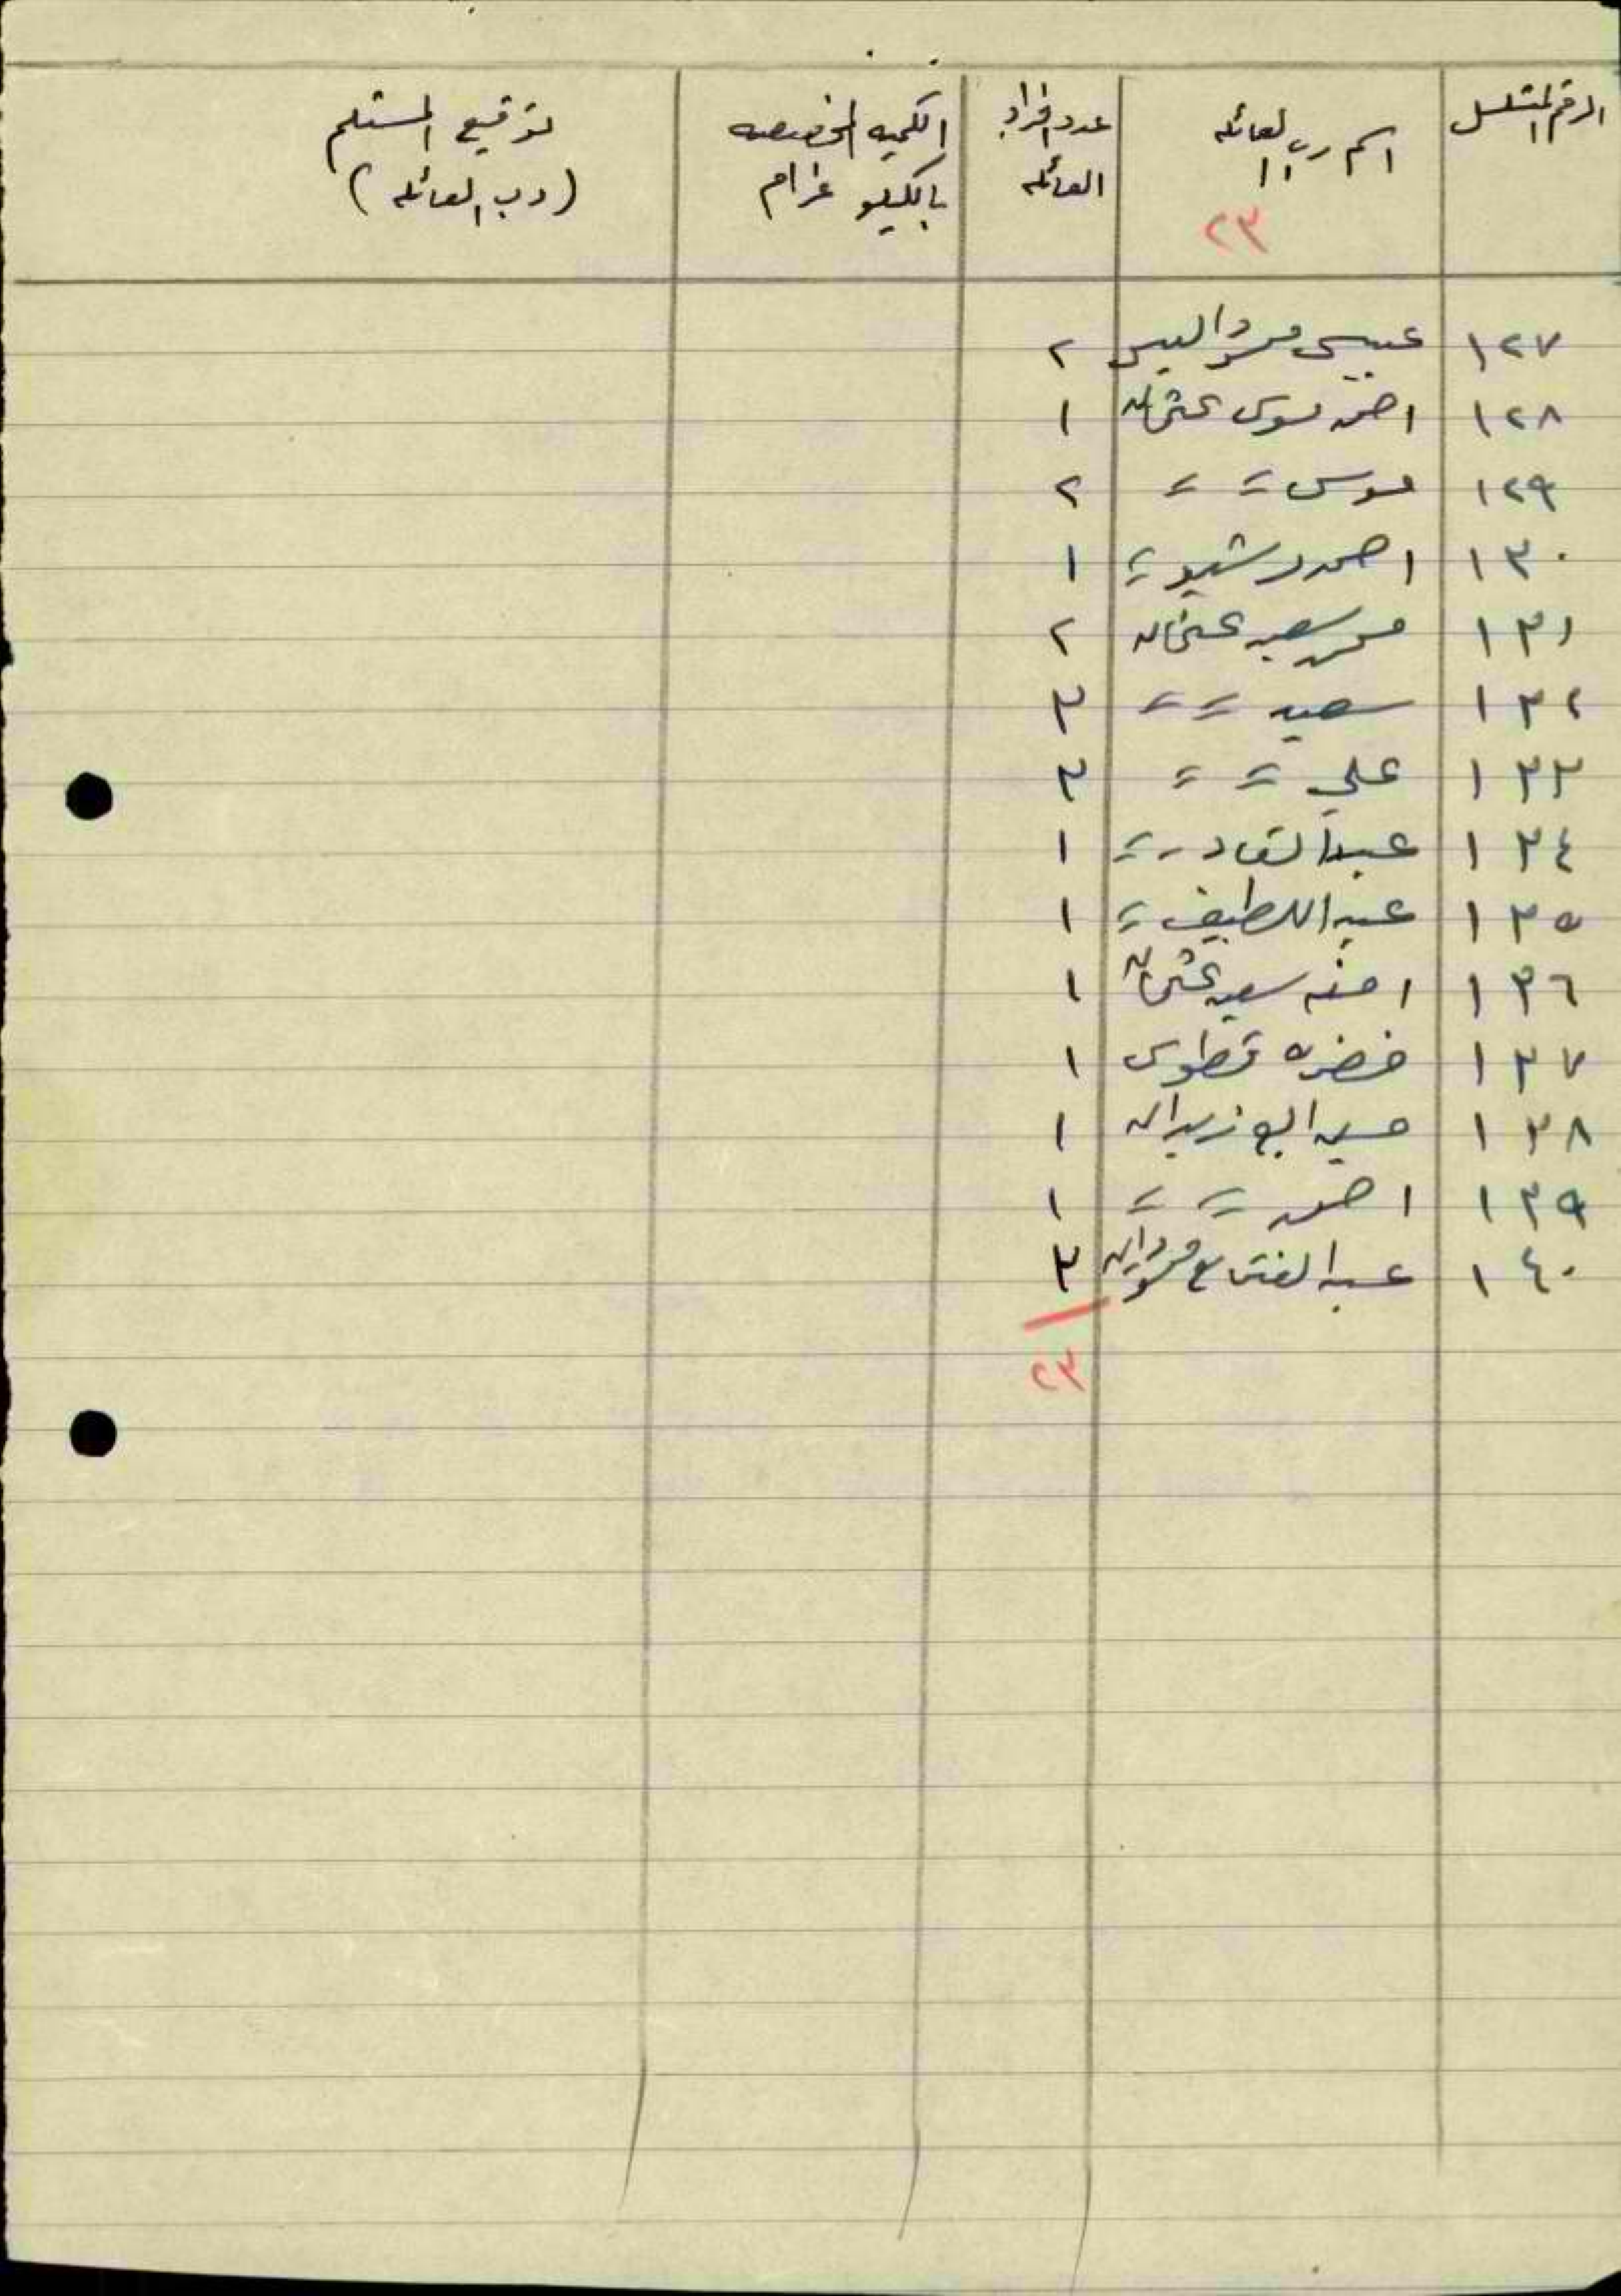 الرقم المتسلسل | اسم رب العائله | عدد افراد العائله | الكميه المخصصه بالكيلو غرام | توقيع المستلم (رب العائله)
٢٣
١٢٧ | عيسى | ٢
١٢٨ | احمد موسى عثمان | ١
١٢٩ | موسى = = | ٢
١٣٠ | احمد رشيد = | ١
١٣١ | محمد سعيد عثمان | ٢
١٣٢ | سعيد = = | ٣
١٣٣ | علي = = | ٣
١٣٤ | عبد القادر = | ١
١٣٥ | عبد اللطيف = | ١
١٣٦ | امنه سعيد عثمان | ١
١٣٧ | خضره قطوس | ١
١٣٨ | حسين ابو زيدان | ١
١٣٩ | احمد = = | ١
١٤٠ | عبد الفتاح | ٣
٢٣